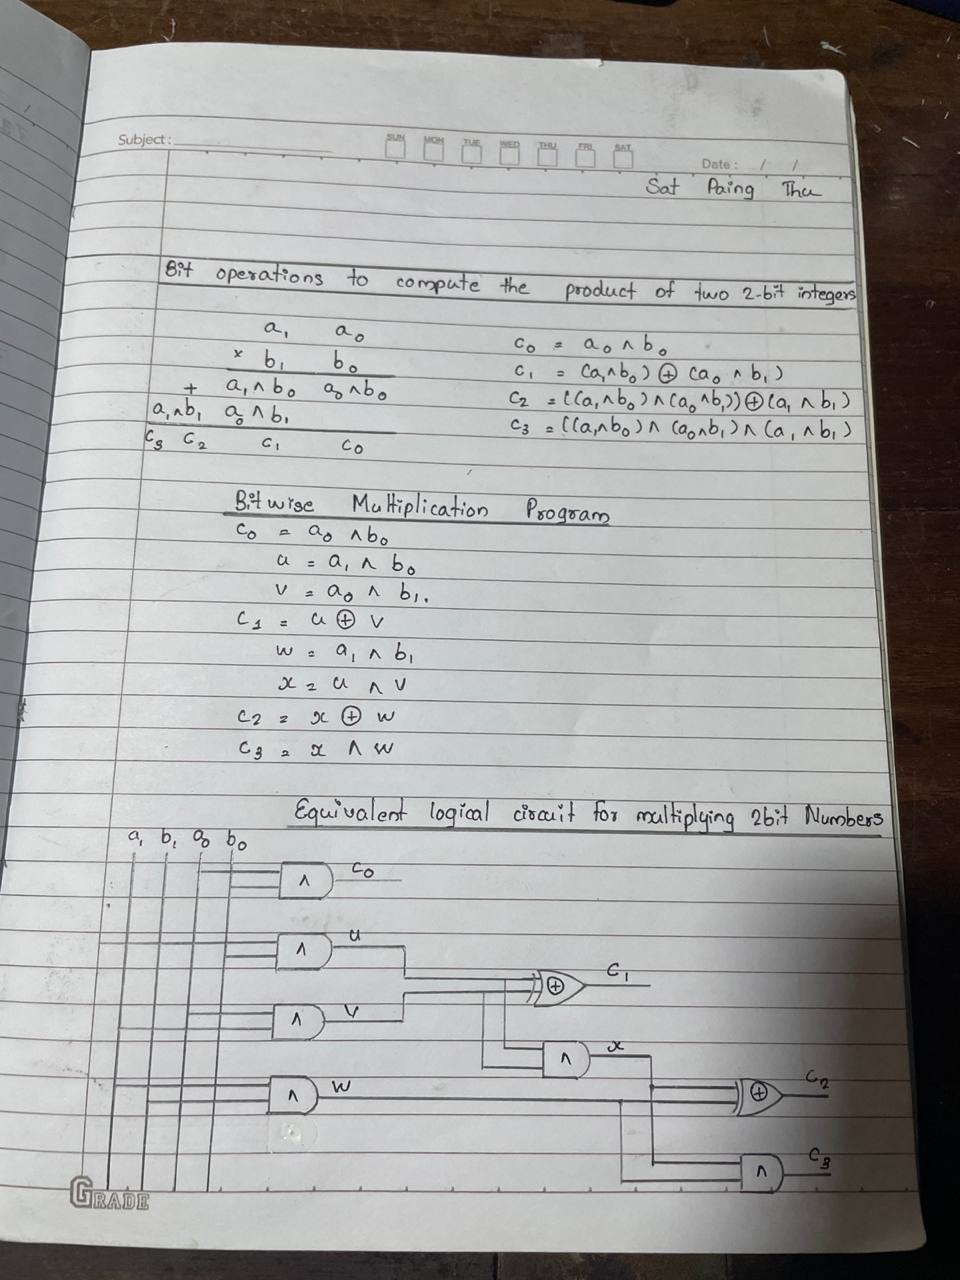 Subject:
SUN MON TUE WED THU FRI SAT
Date: / /
Sat Paing Thu
Bit operations to compute the product of two 2-bit integers
a₁ a₀
× b₁ b₀
+ a₁∧b₀ a₀∧b₀
a₁∧b₁ a₀∧b₁
c₃ c₂ c₁ c₀
c₀ = a₀ ∧ b₀
c₁ = (a₁∧b₀) ⊕ (a₀ ∧ b₁)
c₂ = ((a₁∧b₀) ∧ (a₀∧b₁)) ⊕ (a₁ ∧ b₁)
c₃ = ((a₁∧b₀) ∧ (a₀∧b₁) ∧ (a₁ ∧ b₁)
Bitwise Multiplication Program
c₀ = a₀ ∧ b₀
u = a₁ ∧ b₀
v = a₀ ∧ b₁.
c₁ = u ⊕ v
w = a₁ ∧ b₁
x = u ∧ v
c₂ = x ⊕ w
c₃ = x ∧ w
Equivalent logical circuit for multiplying 2bit Numbers
a₁ b₁ a₀ b₀
∧ c₀
∧ u
⊕ c₁
∧ v
∧ x
∧ w
⊕ c₂
∧ c₃
GRADE